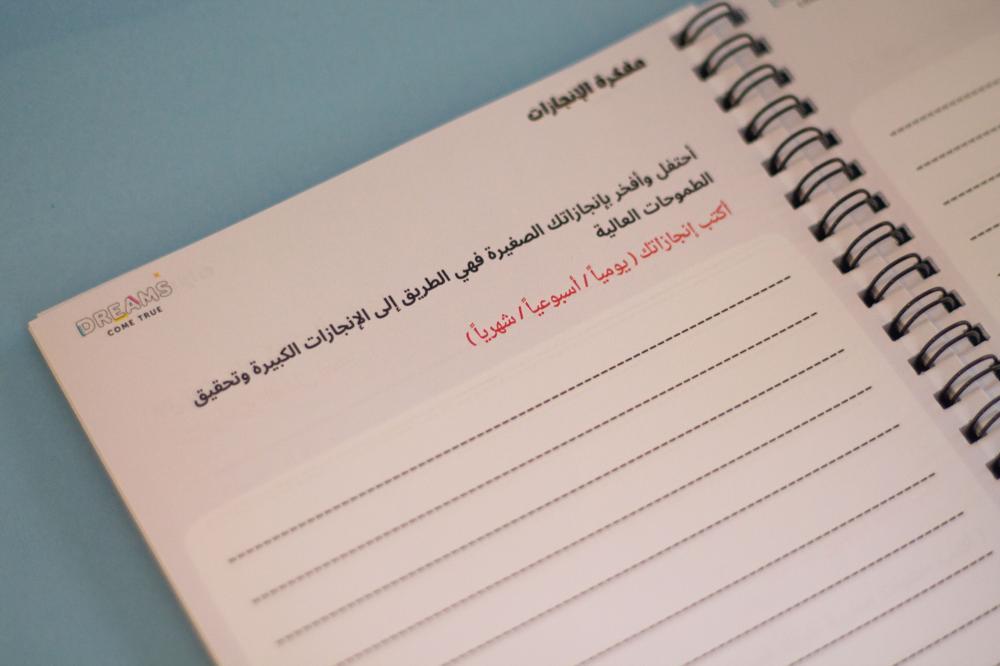 مفكرة الإنجازات
أحتفل وأفخر بإنجازاتك الصغيرة فهي الطريق إلى الإنجازات الكبيرة وتحقيق
الطموحات العالية
أكتب إنجازاتك ( يومياً / أسبوعياً / شهرياً )
DREAMS
COME TRUE